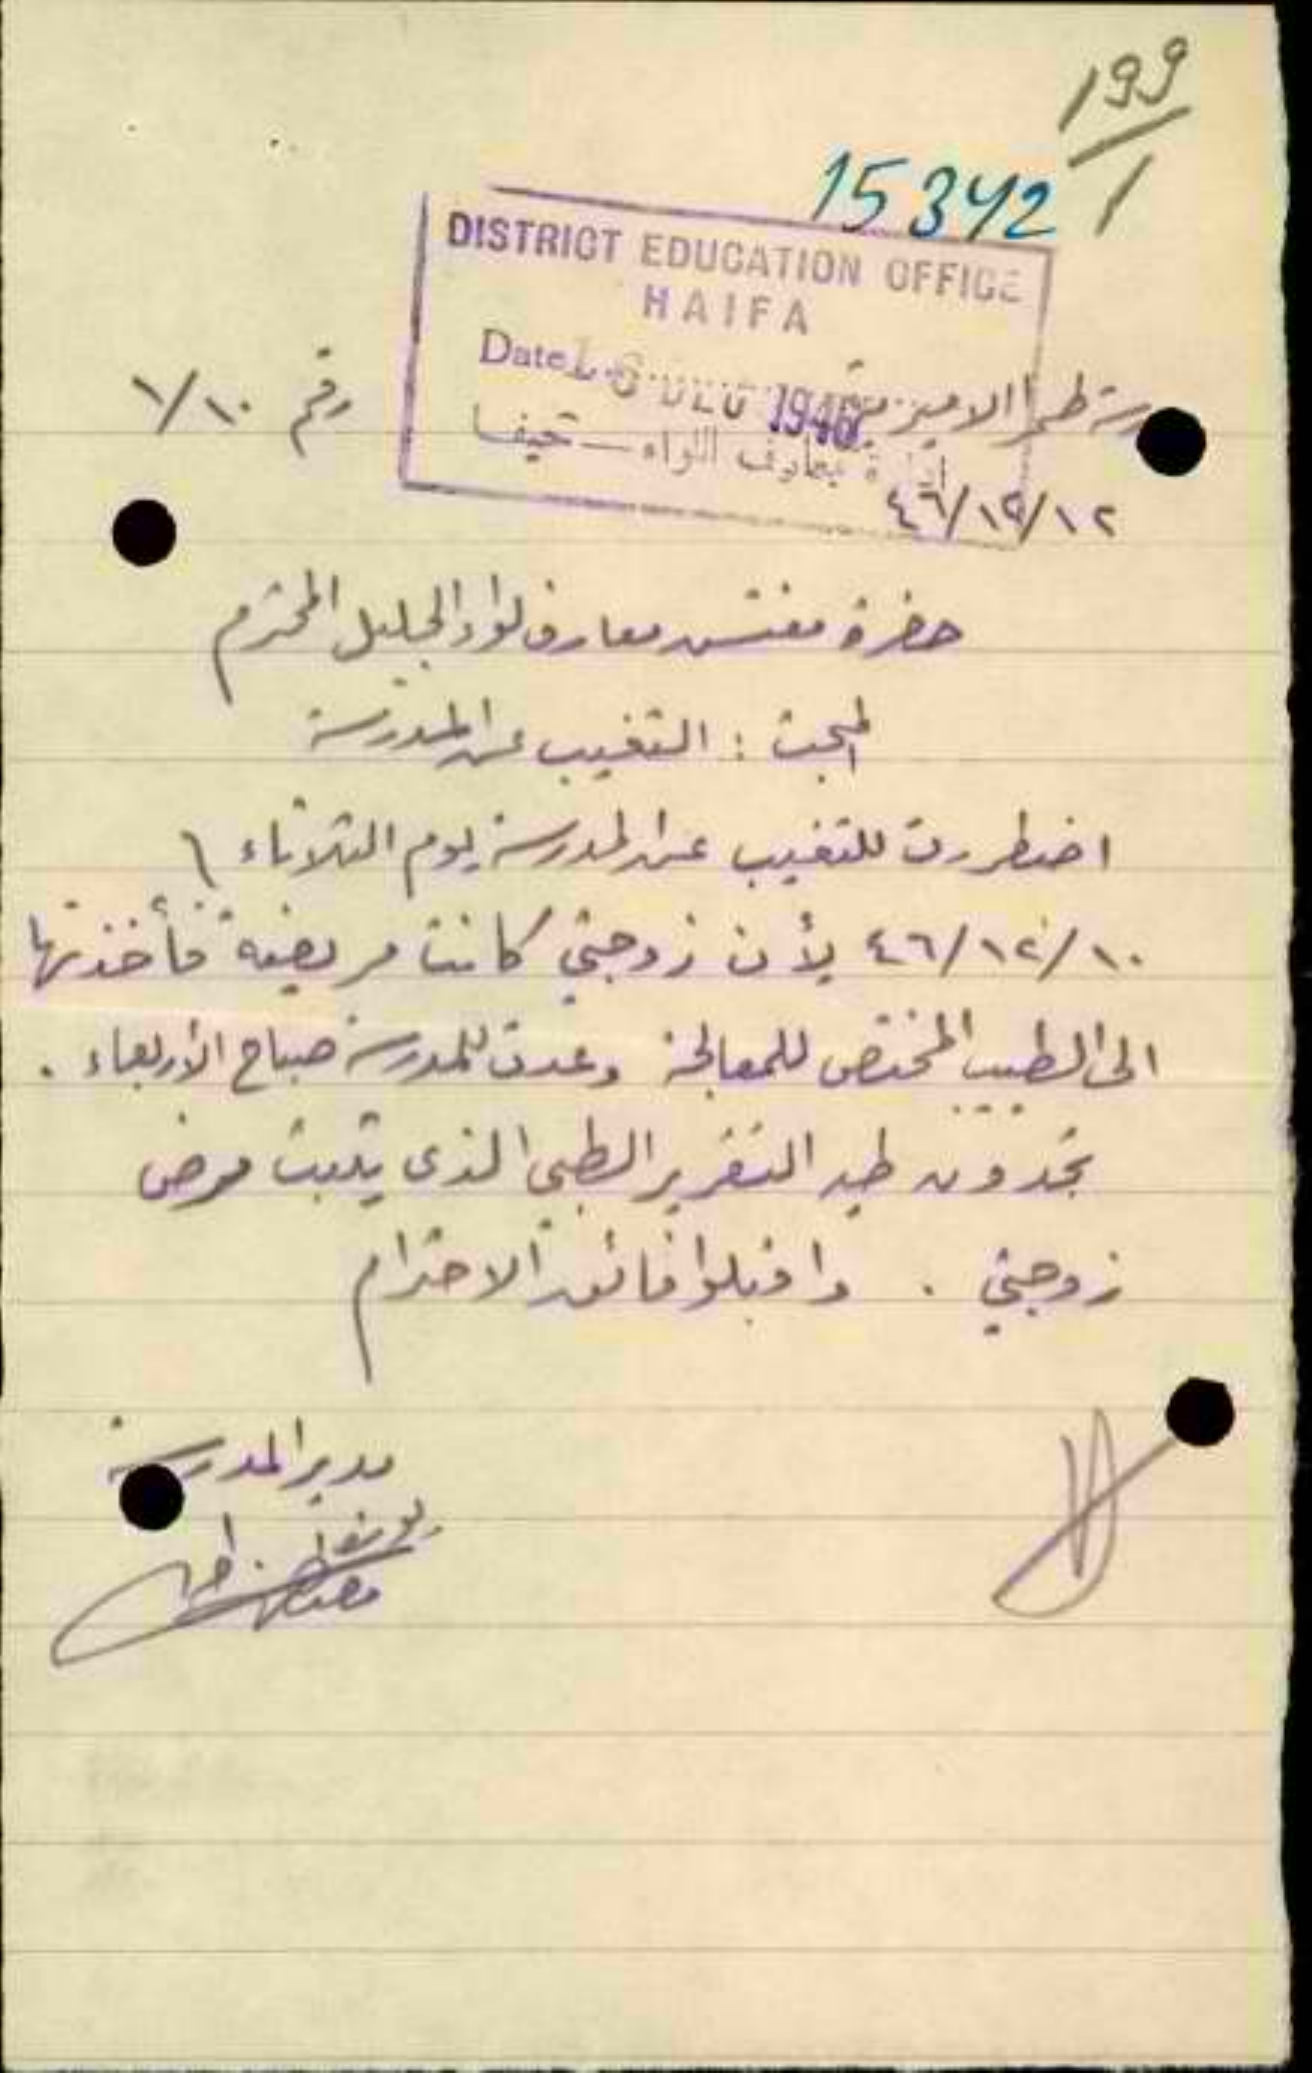 199/1
15342
DISTRICT EDUCATION OFFICE
HAIFA
Date 16 DEC 1946
ادارة معارف اللواء - حيفا
مدرسة طمرا الاميرية رقم ١/١٠
٤٦/١٢/١٢
حضرة مفتش معارف لواء الجليل المحترم
المبحث : التغيب عن المدرسة
اضطررت للتغيب عن المدرسة يوم الثلاثاء \
٤٦/١٢/١٠ لأن زوجتي كانت مريضة فأخذتها
الى الطبيب المختص للمعالجة وعدت للمدرسة صباح الأربعاء .
تجدون طيه التقرير الطبي الذي يثبت مرض
زوجتي . واقبلوا فائق الاحترام
مدير المدرسة